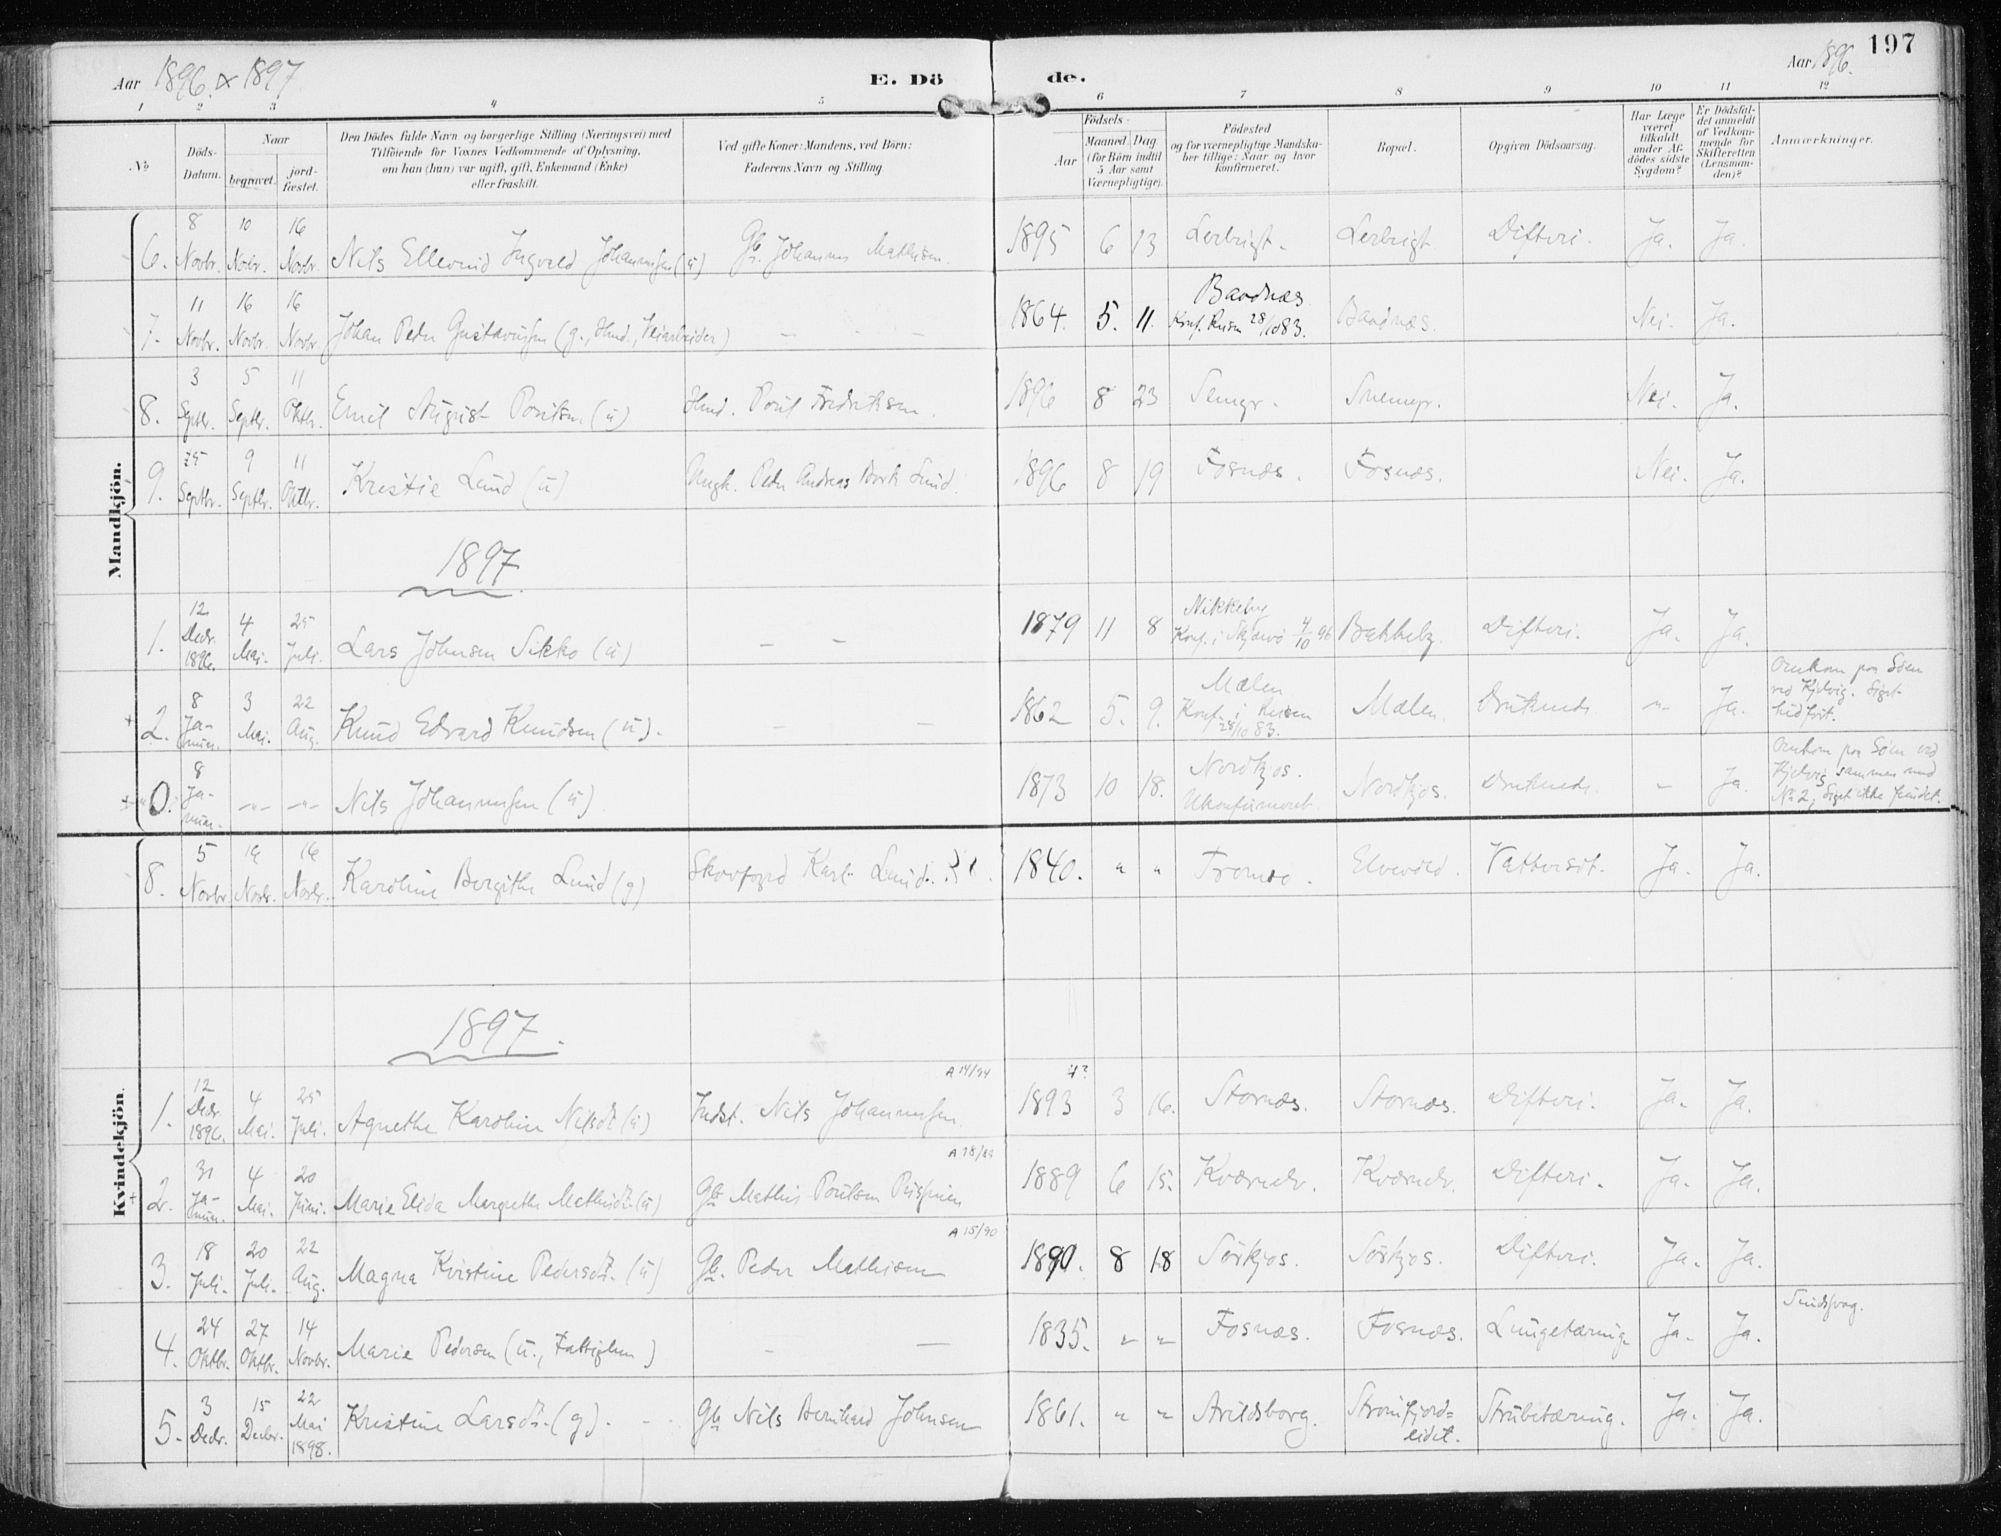 Aar 1896 & 1897
E. Dö
de.
Aar 1896.
197
1 2 3 4 5 6 7 8 9 10 11 12
No
Döds-
Datum.
Naar
begravet.
jord-
fæstet.
Den Dödes fulde Navn og borgerlige Stilling (Næringsvei) med
Tilföiende for Voxnes Vedkommende af Oplysning,
om han (hun) var ugift, gift, Enkemand (Enke)
eller fraskilt.
Ved gifte Koner: Mandens, ved Börn:
Faderens Navn og Stilling.
Födsels-
Aar
Maaned. Dag.
(for Börn indtil
5 Aar samt
Værnepligtige).
Födested
og for værnepligtige Mandska-
ber tillige: Naar og hvor
konfirmeret.
Bopæl.
Opgiven Dödsaarsag.
Har Læge
været
tilkaldt
under Af-
dödes sidste
Sygdom?
Er Dödsfal-
det anmeldt
af Vedkom-
mende for
Skifteretten
(Lensman-
den)?
Anmærkninger.
Mandkjön.
6. 8 Novbr. 10 Novbr. 16 Novbr. Nils Ellevind Ingvald Johannessen (u) Gb. Johannes Mathisen. 1895 6 13 Lerbugt. Lerbugt Difteri. Ja. Ja.
7. 11 Novbr. 16 Novbr. 16 Novbr. Johan Peder Gustavussen (g., Hmd., Veiarbeider) – – 1864. 5. 11. Baadnæs Konf. Reisen 28/10 83. Baadnæs. Nei. Ja.
8. 3 Septbr. 5 Septbr. 11 Oktbr. Emil August Poulsen (u) Hmd. Poul Fredriksen. 1896 8 23 Nei. Ja.
9. Septbr. 9 Septbr. 11 Oktbr. Kristie Lund (u) Peder Andreas Lund. 1896 8 19 Fosnæs. Fosnæs. Nei. Ja.
1897
1. 12 Decbr. 1896. 4 Mai. 25 Juli. Lars Johnsen Sikko (u) – – 1879 11 8 Nikkeby Konf. i Skjervö 4/10 96 Bakkeby. Difteri. Ja. Ja.
2. 8 Januar. 3 Mai. 22 Aug. Knud Edvard Knudsen (u). – – 1862 5. 9. Mælen Konf. i Reisen 28/10 83. Mælen. Druknede. -"- Ja. Omkom paa Söen
ved Kjelvig. Liget
hidfört.
0. 8 Januar. -"- -"- Nils Johannessen (u). 1873 10 18. Nordkjos. Ukonfirmeret. Nordkjos. Druknede. - Ja. Omkom paa Söen ved
Kjelvig sammen med
No 2, Liget ikke fundet.
Kvindekjön.
8. 5 Novbr. 16 Novbr. 16 Novbr. Karoline Bergithe Lund (g) Skovfoged Karl Lund. 1840. " " Tromsö. Elvevold. Vattersot. Ja. Ja.
1897.
A 14/94
1. 12 Decbr. 1896. 4 Mai. 25 Juli. Agnethe Karoline Nilsdt. (u) Indst. Nils Johannessen. 1893 4? 3 16. Stornæs. Stornæs. Difteri. Ja. Ja.
2. 31 Januar. 4 Mai. 20 Juni. Marie Elida Margrethe Mathisdt. (u) Gb. Mathis Poulsen 1889 6 15. Kvænelv. Kvænelv. Difteri. Ja. Ja.
A 15/90
3. 18 Juli. 20 Juli. 22 Aug. Magna Kristine Pedersdt. (u) Gb. Peder Mathisen 1890. 8 18 Sörkjos. Sörkjos. Difteri. Ja. Ja.
4. 24 Oktbr. 27 Oktbr. 14 Novbr. Marie Pedersen (u., Fattiglem) – – 1835. " " Fosnæs. Fosnæs. Lungetæring. Ja. Ja. Sindssvag.
5. 3 Decbr. 15 Decbr. 22 Mai 1898. Kristine Larsdt. (g). Gb. Nils Bernhard Johnsen 1861. " " Arildsborg. Straumfjord=
eidet. Strubetæring. Ja. Ja.